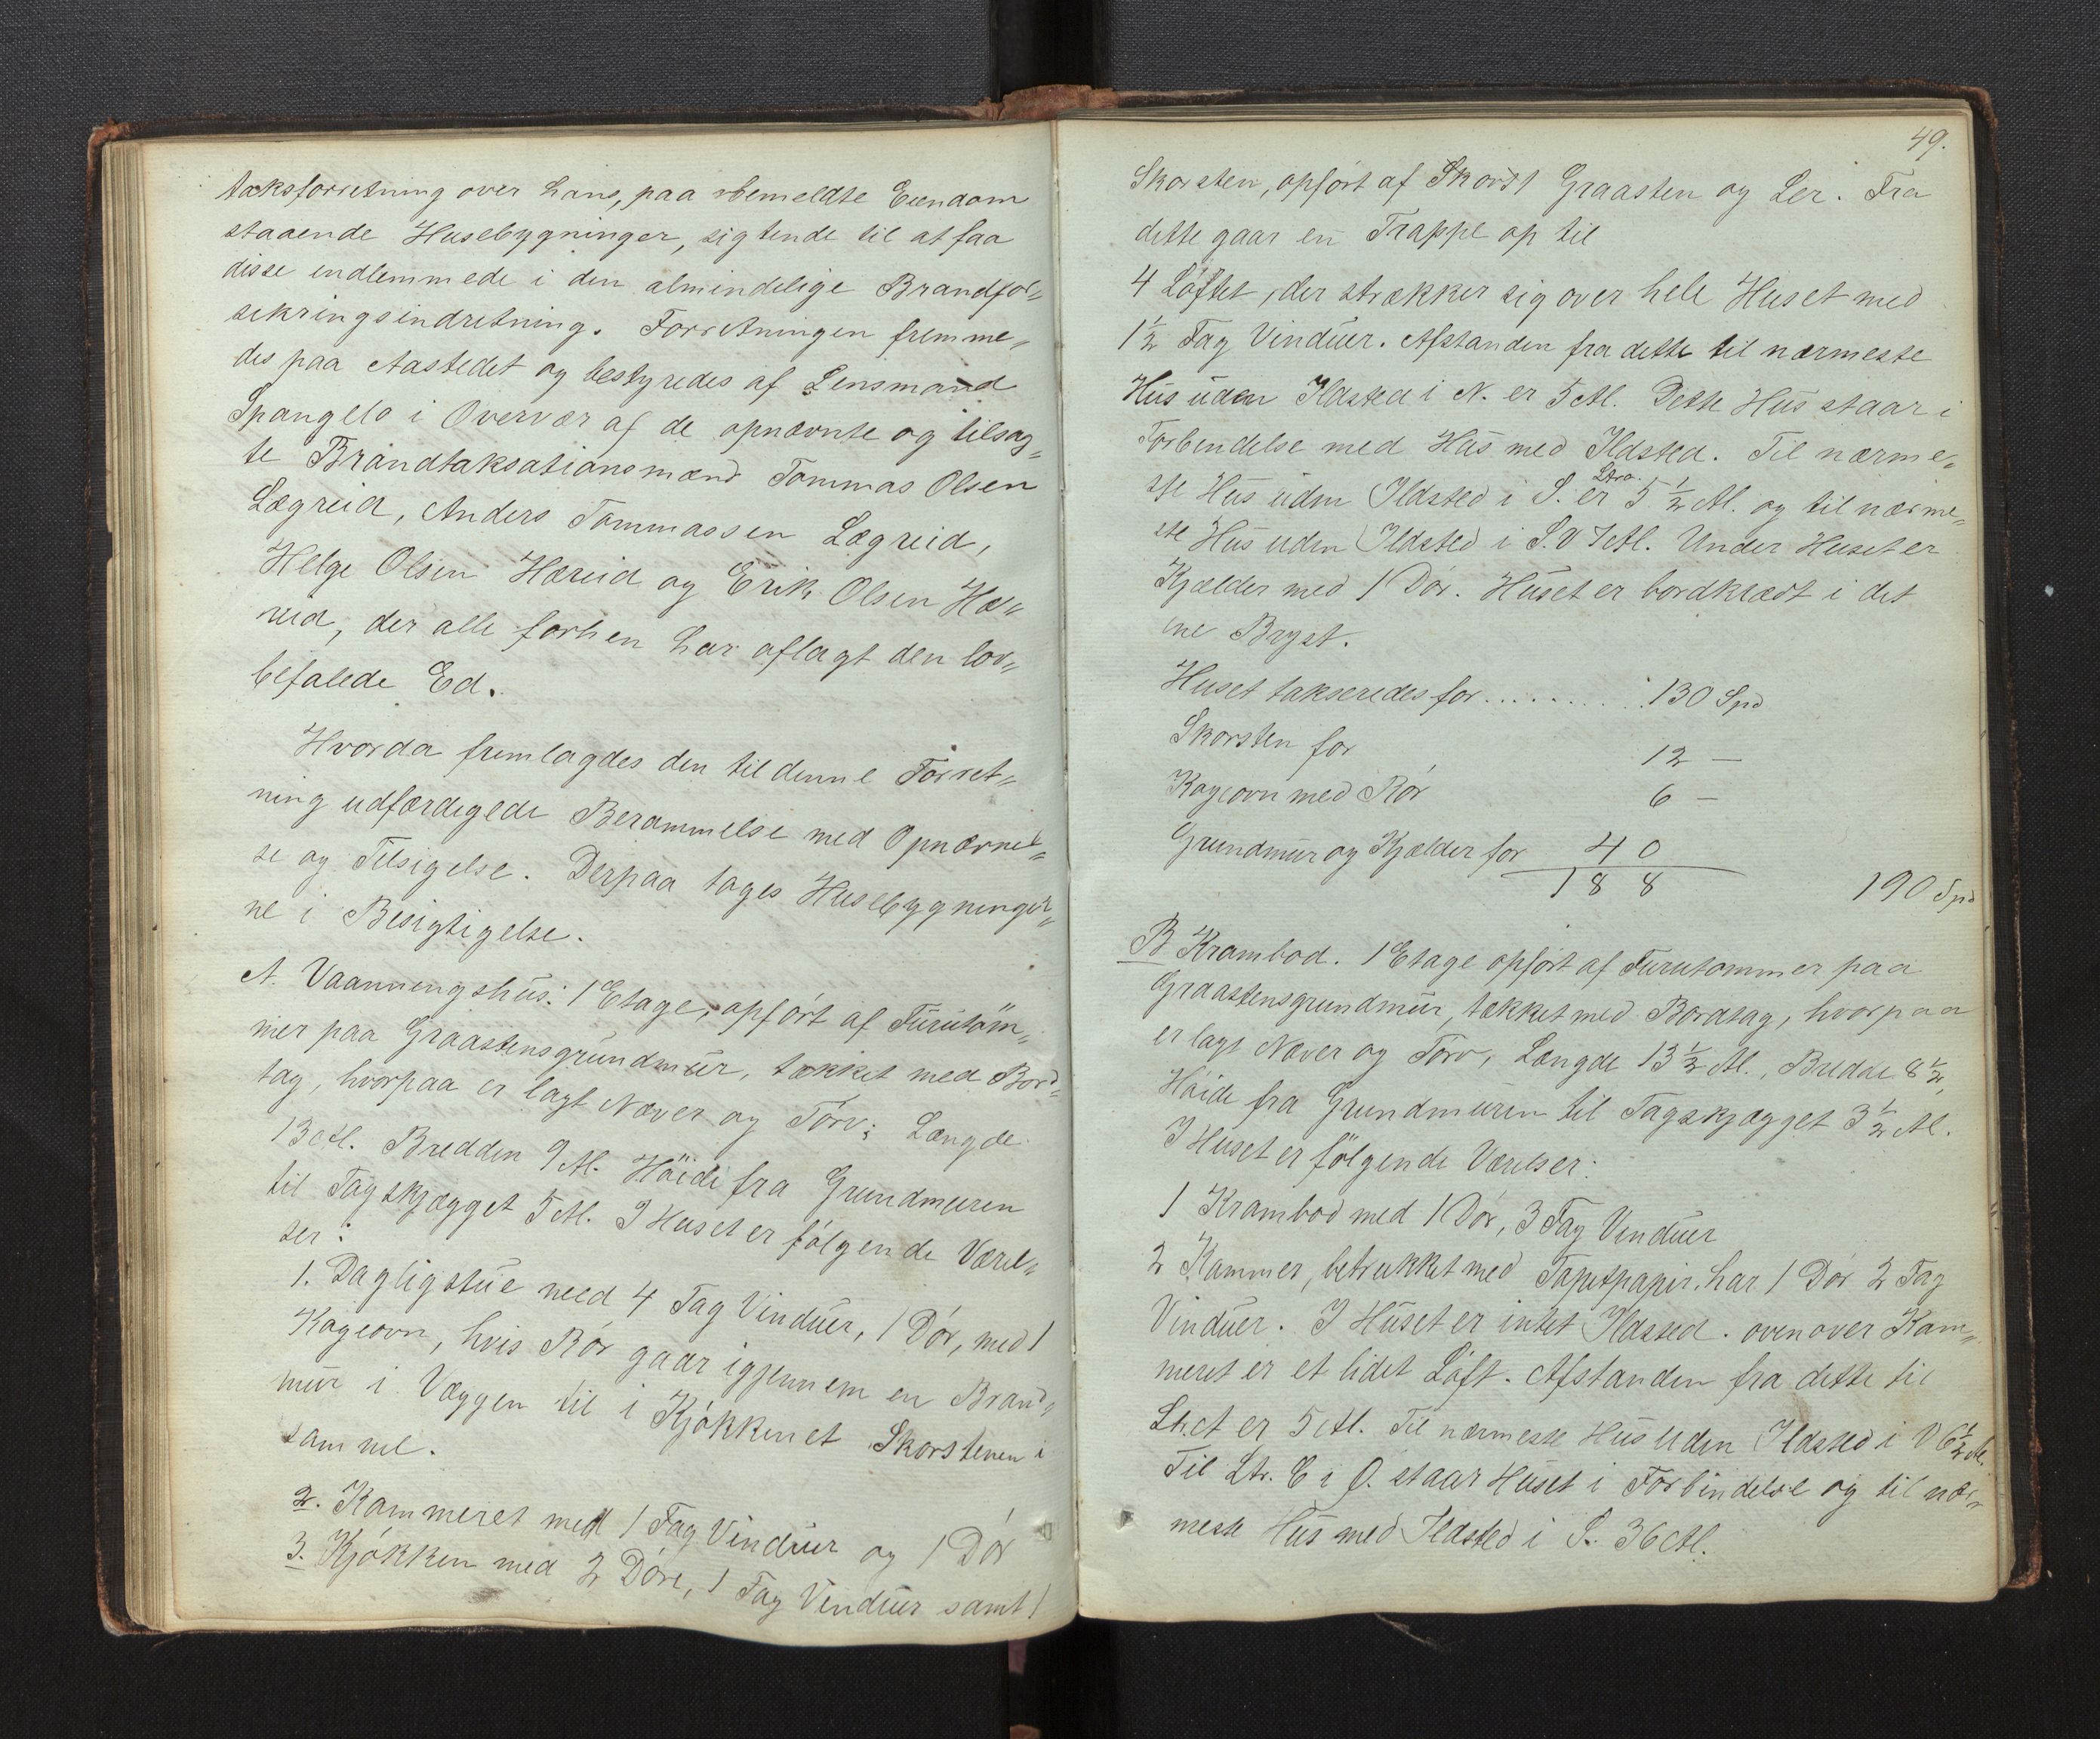 taksforretning over hans, paa ovbemeldte Eiendom
staaende Husebygninger, sigtende til at faa
disse indlemmede i den almindelige Brandfor„
sikringsindretning. Forretningen fremme„
des paa Aastedet og bestyredes af Lensmand
Spangelo i Overvær af de opnævnte og tilsag„
te Brandtaksationsmænd Tommas Olsen
Lægreid, Anders Tommassen Lægreid,
Helge Olsen Hæreid og Erik Olsen Hæ„
reid, der alle forhen har aflagt den lov„
befalede Ed.
Hvorda fremlagdes den til denne Forret„
ning udfærdigede Berammelse med Opnævnel„
se og Tilsigelse. Derpaa toges Husebygninger„
ne i Besigtigelse.
A. Vaanningshus: 1 Etage, opført af Furutøm„
mer paa Graastensgrundmur, tækket med Bord„
tag, hvorpaa er lagt Næver og Törv; Længde
13 Al. Bredden 9 Al. Høide fra Grundmuren
til Tagskjægget 5 Al. I Huset er følgende Værel„
ser:
1. Dagligstue med 4 Fag Vinduer, 1 Dör, med 1
Kogeovn, hvis Rör gaar igjennem en Brand„
mur i Væggen til i Kjøkkenet Skorstenen i
samme.
2. Kammeret med 1 Fag Vinduer og 1 Dör
3. Kjøkken med 2 Döre, 1 Fag Vinduer samt 1
49.
Skorsten, opført af Graasten og Ler. Fra
dette gaar en Trappe op til
4 Løftet, der strækker sig over hele Huset med
1½ Fag Vinduer. Afstanden fra dette til nærmeste
Hus uden Ildsted i N. er 5 Al. Dette Hus staar i
Forbindelse med Hus med Ildsted. Til nærme„
ste Hus uden Ildsted i S. er 5½ Al. og til nærme„
ste Hus uden Ildsted i S.V 7 Al. Under Huset er
Kjælder med 1 Dör. Huset er bordklædt i det
ene Bryst.
Huset takseredes for .......... 130 Spd
Skorsten for 12 —
Kogeovn med Rör 6 —
Grundmur og Kjælder for 40
188 190 Spd
B Krambod. 1 Etage opført af Furutømmer paa
Graastensgrundmur, tækket med Bordtag, hvorpaa
er lagt Næver og Törv, Længde 13½ Al., Bredde 8½,
Høide fra Grundmuren til Tagskjægget 3½ Al.
I Huset er følgende Værelser:
1 Krambod med 1 Dör, 3 Fag Vinduer
2 Kammer, betrukket med Tapetpapir, har 1 Dör 2 Fag
Vinduer. I Huset er intet Ildsted. ovenover Kam„
meret er et lidet Løft. Afstanden fra dette til
er 5 Al. Til nærmeste Hus uden Ildsted i V 6½ Al.
Til Ltr. C i Ø. staar Huset i Forbindelse og til nær„
meste Hus med Ildsted i S. 36 Al.